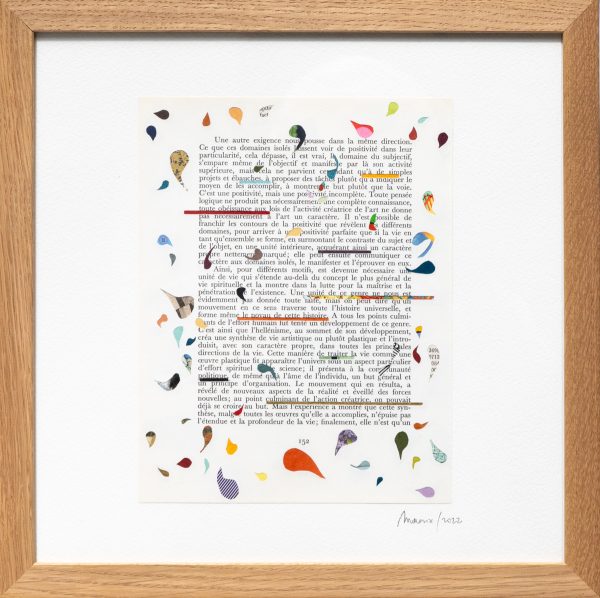 Une autre exigence nous pousse dans la même direction.
Ce que ces domaines isolés laissent voir de positivité dans leur
particularité, cela dépasse, il est vrai, le domaine du subjectif,
s'empare même de l'objectif et manifeste par là son activité
supérieure, mais cela ne parvient cependant qu'à de simples
projets et ébauches, à proposer des tâches plutôt qu'à indiquer le
moyen de les accomplir, à montrer le but plutôt que la voie.
C'est une positivité, mais une positivité incomplète. Toute pensée
logique ne produit pas nécessairement une complète connaissance,
toute obéissance aux lois de l'activité créatrice de l'art ne donne
pas nécessairement à l'art un caractère. Il n'est possible de
franchir les contours de la positivité que révèlent différents
domaines, pour arriver à positivité parfaite que si la vie en
tant qu'ensemble se forme, en surmontant le contraste du sujet et
de l'objet en une unité intérieure, acquérant ainsi un caractère
propre nettement marqué; elle peut ensuite communiquer ce
caractère aux domaines isolés, le manifester et l'éprouver en eux.
Ainsi, pour différents motifs, est devenue nécessaire une
unité de vie qui s'étende au-delà du concept le plus général de
vie spirituelle et la montre dans la lutte pour la maîtrise et la
pénétration de l'existence. Une unité de ce genre ne nous est
évidemment pas donnée toute faite, mais on peut dire qu'un
mouvement en ce sens traverse toute l'histoire universelle, et
forme même le noyau de cette histoire. A tous les points culmi-
nants de l'effort humain fut tenté un développement de ce genre.
C'est ainsi que l'hellénisme, au sommet de son développement,
créa une synthèse de vie artistique ou plutôt plastique et l'intro-
duisit, avec son caractère propre, dans toutes les principales
directions de la vie. Cette manière de traiter la vie comme une
œuvre plastique fit apparaître l'univers sous un aspect particulier
d'effort spirituel science; il présenta à la communauté
politique, de même qu'à l'âme de l'individu, un but général et
un d'organisation. Le mouvement qui en résulta, a
révélé de nouveaux aspects de la réalité et éveillé des forces
nouvelles; au point culminant de l'action créatrice, on pouvait
déjà se croire au but. Mais l'expérience a montré que cette syn-
thèse, malgré toutes les œuvres qu'elle a accomplies, n'épuise pas
l'étendue et la profondeur de la vie; finalement, elle n'est qu'un
152
/2022